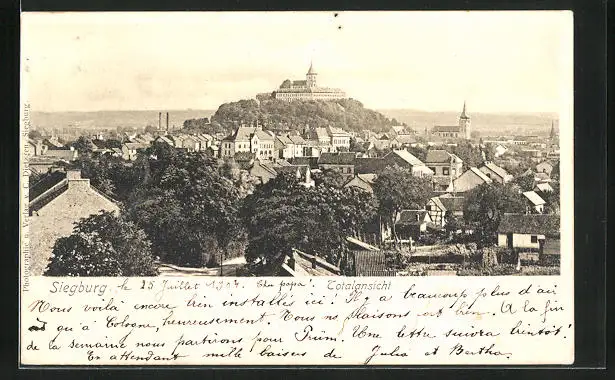 Photographie u. Verlag v. C. Dietzgen, Siegburg.
Siegburg. le 25 Juillet Cher papa! Totalansicht
Nous voilà encore bien installés ici! Il y a beaucoup plus d'air
qu'à Cologne, heureusement. Nous ne plaisons bien. A la fin
de la semaine nous partirons pour Prüm. Une lettre suivra bientôt!
En attendant mille baisers de Julia et Bertha.